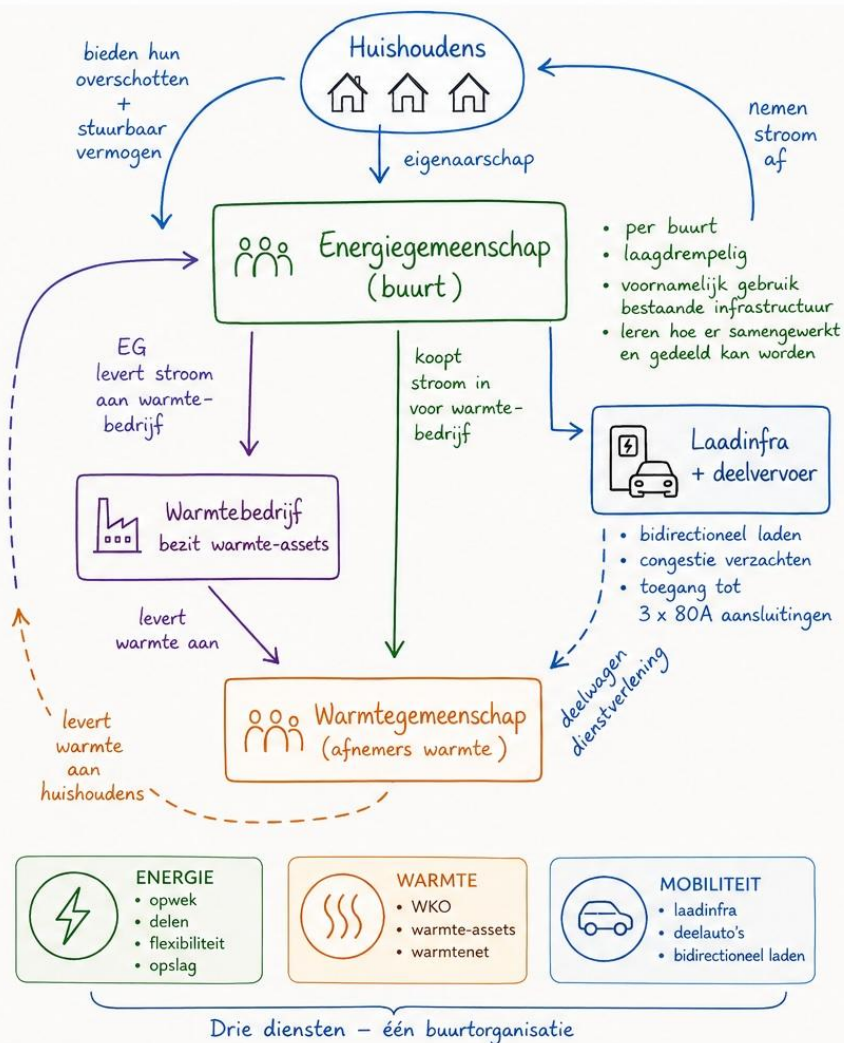 Huishoudens
bieden hun
overschotten
+
stuurbaar
vermogen
eigenaarschap
nemen
stroom
af
Energiegemeenschap
(buurt)
• per buurt
• laagdrempelig
• voornamelijk gebruik
bestaande infrastructuur
• leren hoe er samengewerkt
en gedeeld kan worden
EG
levert stroom
aan warmte-
bedrijf
koopt
stroom in
voor warmte-
bedrijf
Laadinfra
+ deelvervoer
Warmtebedrijf
bezit warmte-assets
• bidirectioneel laden
• congestie verzachten
• toegang tot
3 x 80A aansluitingen
levert
warmte aan
deelwagen
dienstverlening
Warmtegemeenschap
(afnemers warmte)
levert
warmte
aan
huishoudens
ENERGIE
• opwek
• delen
• flexibiliteit
• opslag
WARMTE
• WKO
• warmte-assets
• warmtenet
MOBILITEIT
• laadinfra
• deelauto's
• bidirectioneel laden
Drie diensten – één buurtorganisatie